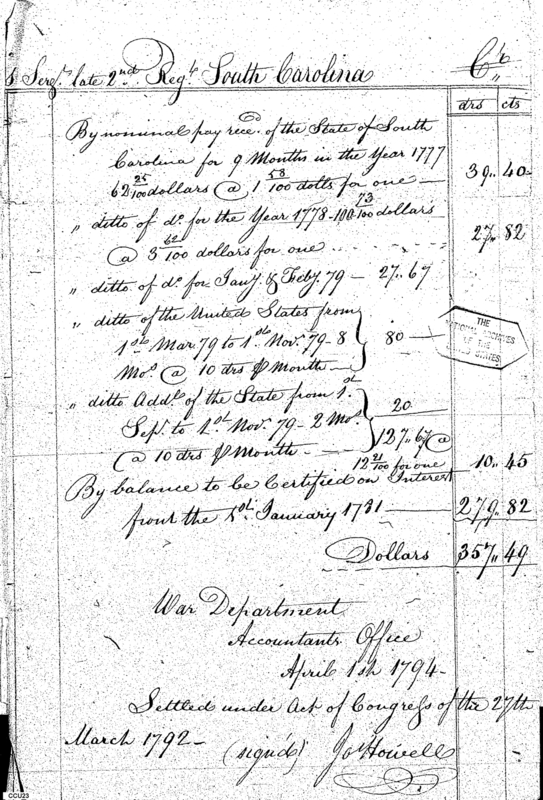 s Sergt. late 2nd Regt. South Carolina Cr.
drs cts
By nominal pay recd. of the State of South
Carolina for 9 Months in the Year 1777
62 25/100 dollars @ 1 58/100 dolls for one — 39.. 40
" ditto of do. for the Year 1778 - 100 73/100 dollars
@ 3 62/100 dollars for one .. 27.. 82
" ditto of do. for Jany. & Feby. 79 — 27.. 67
" ditto of the United States from
1st Mar 79 to 1st Novr. 79 - 8 80 —
Mos. @ 10 drs ⅌ Month —
" ditto Addl. of the State from 1st
Sepr. to 1st Novr. 79 - 2 Mos. 20
@ 10 drs ⅌ Month — 127.. 67 @
12 21/100 for one 10.. 45
By balance to be Certified on Interest
from the 1st January 1781 — 279.. 82
Dollars 357.. 49
THE
NATIONAL ARCHIVES
OF THE
UNITED STATES
War Department
Accountants Office
April 1st 1794 -
Settled under Act of Congress of the 27th
March 1792 -
(signed) Jo Howell
CCU23